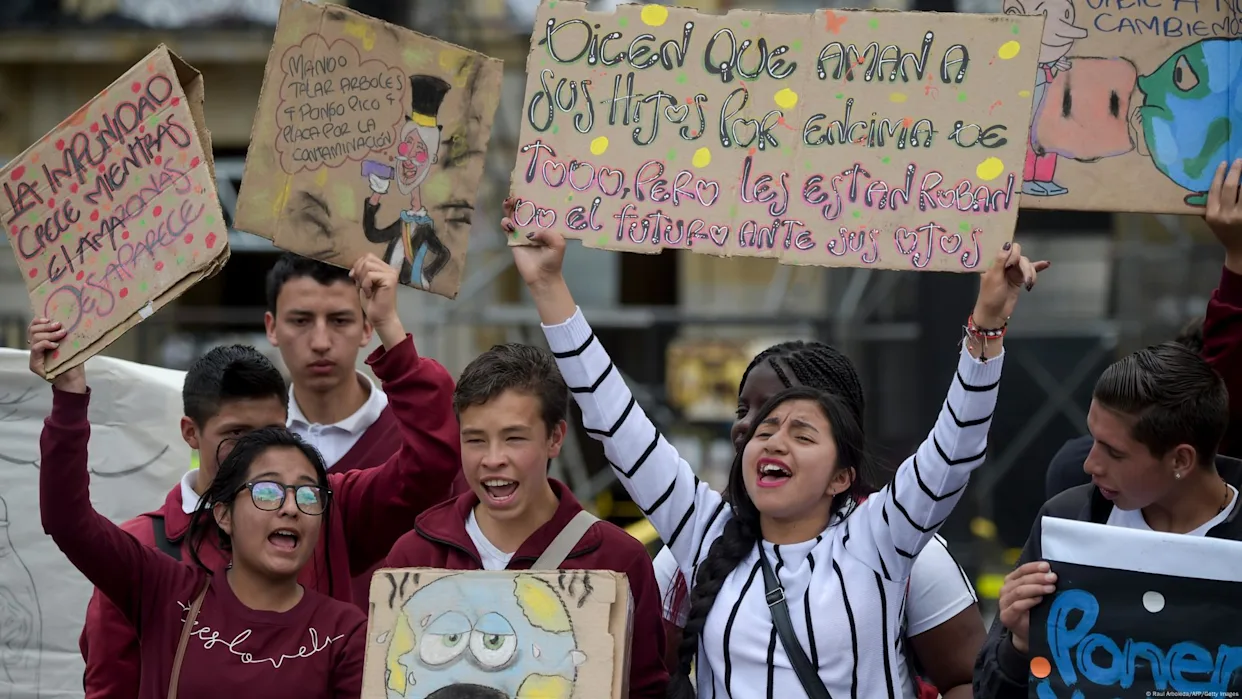 LA IMPUNIDAD
CRECE MIENTRAS
EL AMAZONAS
DESAPARECE
MANDO
TALAR ARBOLES
& PONGO PICO &
PLACA POR LA
CONTAMINACIÓN
DICEN QUE AMAN A
SUS HIJOS POR ENCIMA DE
TODO, PERO LES ESTAN ROBAN
DO EL FUTURO ANTE SUS OJOS
CAMBIEMO
Ponen
© Raul Arboleda/AFP/Getty Images